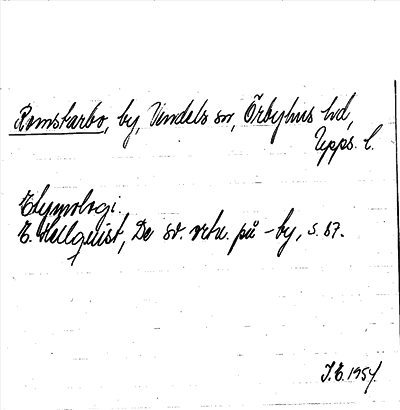 Romstarbo, by, Vendels sn, Örbyhus hd,
Upps. l.
Etymologi.
E. Hellquist, De sv. ortn. på -by, s. 67.
J.E. 1954.